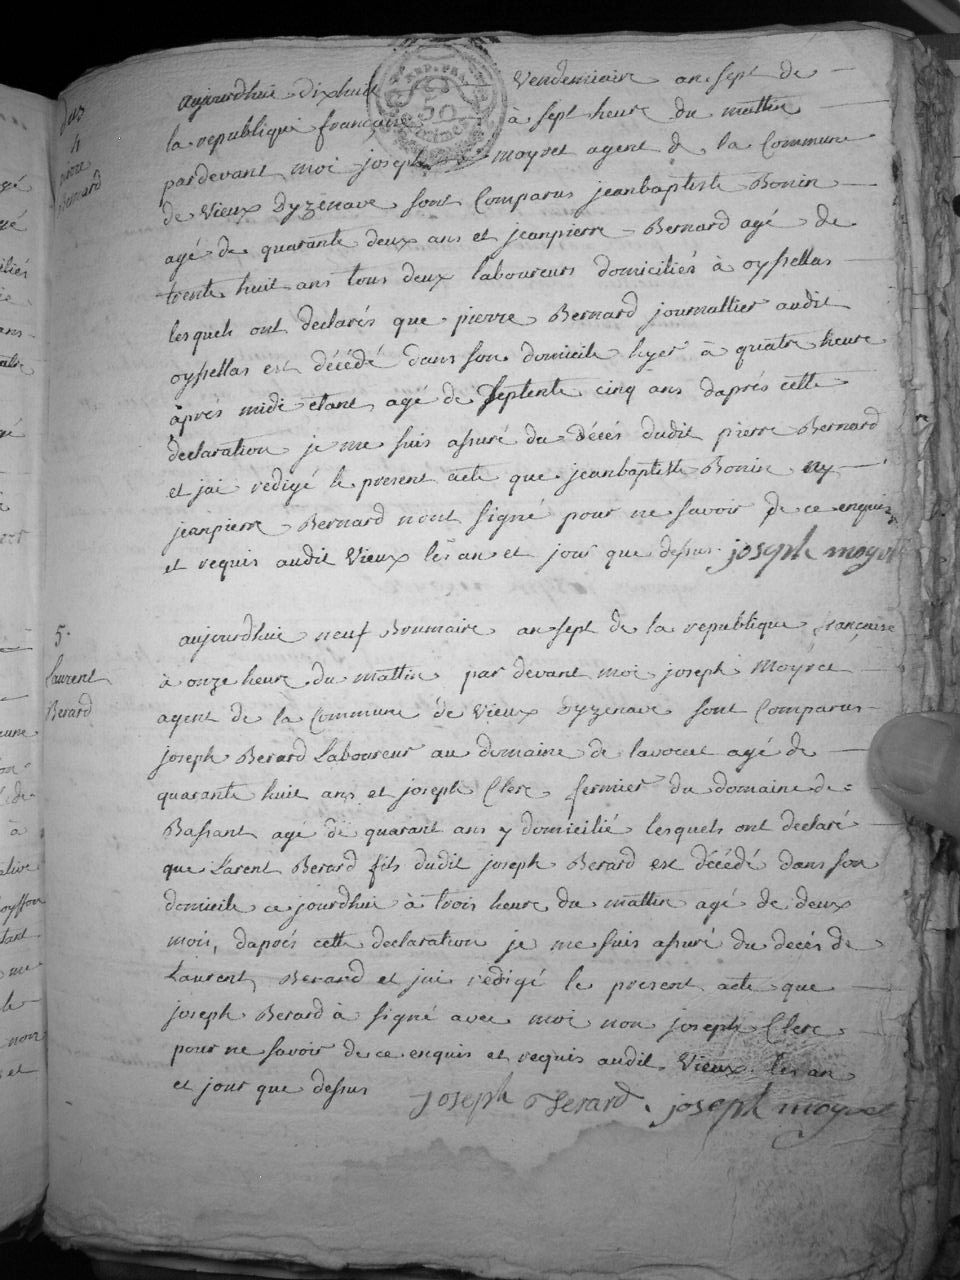 aujourdhui dixhuit Vendemiaire an sept de
la republique française à sept heure du mattin
pardevant moi joseph moyret agent de la Commune
de Vieux Dyzenave sont Comparus jeanbaptiste Bonin
agé de quarante deux ans et jeanpierre Bernard agé de
trente huit ans tous deux laboureurs domiciliés à oyssellas
lesquels ont declarés que pierre Bernard journallier audit
oyssellas est décédé dans son domicile hyer à quatre heure
après midi etant agé de Septente cinq ans daprés cette
declaration je me suis assuré du Décés dudit pierre Bernard
et jai redigé le present acte que jeanbaptiste Bonin ny
jeanpierre Bernard nont signé pour ne savoir de ce enquis
et requis audit Vieux les an et jour que dessus. joseph moyret
5.
Laurent
Berard
aujourdhui neuf Brumaire an sept de la republique française
à onze heure du mattin par devant moi joseph Moyret
agent de la Commune de Vieux Dyzenave sont Comparus
joseph Berard Laboureur au domaine de lavocat agé de
quarante huit ans et joseph Clerc fermier du domaine de
Bassant agé de quarant ans y domicilié lesquels ont declaré
que Larent Berard fils dudit joseph Berard est décédé dans son
domicile ce jourdhui à trois heure du mattin agé de deux
mois, daprés cette declaration je me suis assuré du decés de
Laurent Berard et jai redigé le present acte que
joseph Berard à signé avec moi non joseph Clerc
pour ne savoir de ce enquis et requis audit Vieux les an
et jour que dessus
joseph Berard. joseph moyret